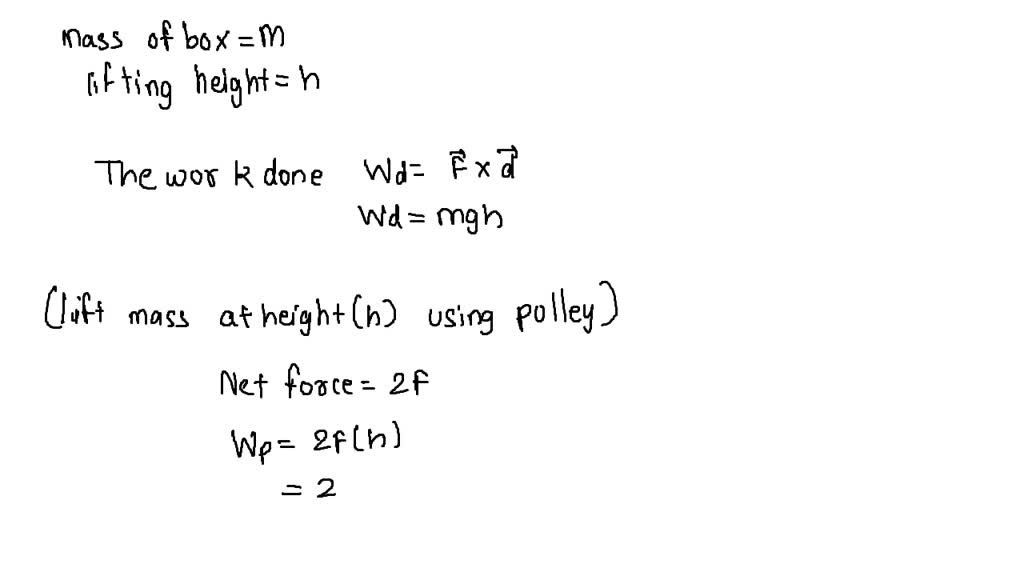 mass of box = m
lifting height = h
The work done Wd = F⃗ × d⃗
Wd = mgh
(lift mass at height (h) using polley)
Net force = 2F
Wp = 2F(h)
= 2